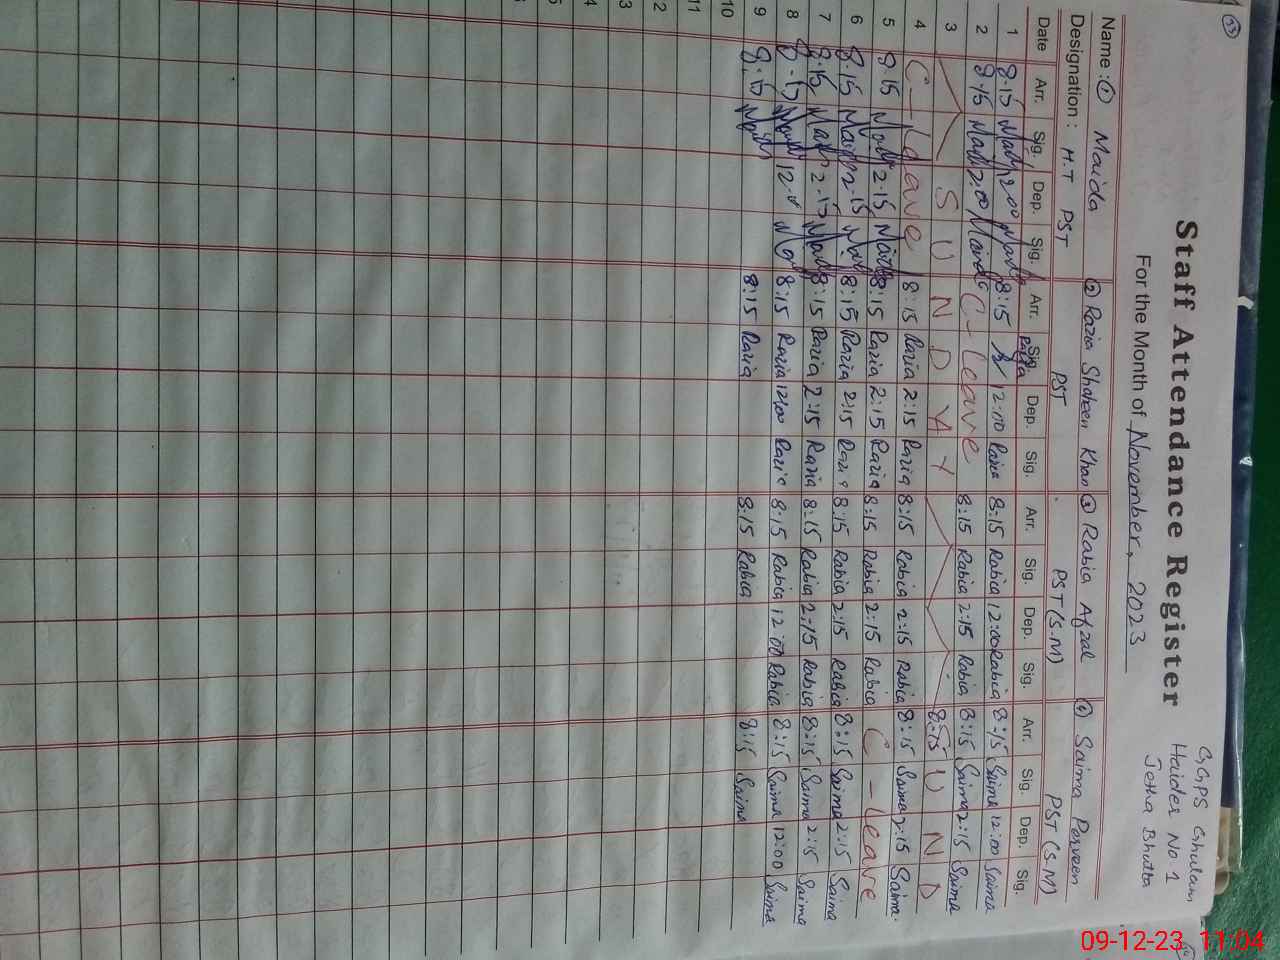 13
Staff Attendance Register
GGPS Ghulam
Haider No 1
Jetha Bhutta
For the Month of November, 2023
Name : ① Maida ② Razia Shaheen Khan ③ Rabia Afzal ④ Saima Parveen
Designation : H.T PST PST PST (S.M) PST (S.M)
Date Arr. Sig. Dep. Sig. Arr. Sig. Dep. Sig. Arr. Sig. Dep. Sig. Arr. Sig. Dep. Sig.
1 8.15 12.00 8:15 Razia 12:00 Razia 8:15 Rabia 12:00 Rabia 8:15 Saima 12:00 Saima
2 8.15 2.00 C-Leave 8:15 Rabia 2:15 Rabia 8:15 Saima 2:15 Saima
3 S U N D A Y 8:15 S U N D
4 C-Leave 8:15 Razia 2:15 Razia 8:15 Rabia 2:15 Rabia 8:15 Saima 2:15 Saima
5 8.15 2.15 8:15 Razia 2:15 Razia 8:15 Rabia 2:15 Rabia C-Leave
6 8.15 2.15 8:15 Razia 2:15 Razia 8:15 Rabia 2:15 Rabia 8:15 Saima 2:15 Saima
7 8.15 2.15 8:15 Razia 2:15 Razia 8:15 Rabia 2:15 Rabia 8:15 Saima 2:15 Saima
8 8.15 12.00 8:15 Razia 12:00 Razia 8:15 Rabia 12:00 Rabia 8:15 Saima 12:00 Saima
9 8.15 8:15 Razia 8:15 Rabia 8:15 Saima
10
11
12
13
14
15
09-12-23 11:04